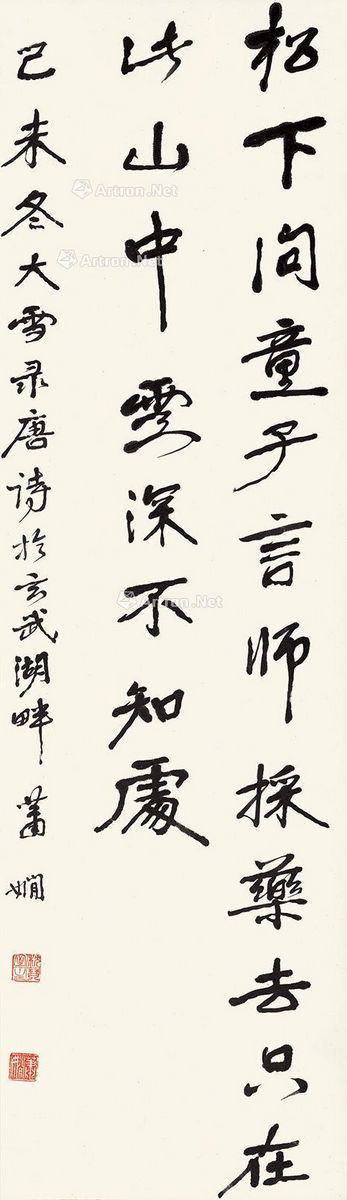 松下问童子言师採藥去只在
此山中雲深不知處
己未冬大雪录唐诗於玄武湖畔 萧娴
Artron.Net
Artron.Net
Artron.Net
Artron.Net